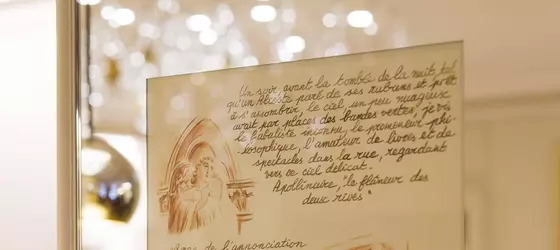 Un soir, avant la tombée de la nuit, tel
qu'un Alceste paré de ses rubans et prêt
à s'assombrir, le ciel, un peu nuageux
avait par places des bandes vertes, je vis
le fabuliste inconnu, le promeneur phi-
losophique, l'amateur de livres et de
spectacles dans la rue, regardant
vers ce ciel délicat.
Apollinaire, "le flâneur des
deux rives"
de l'annonciation